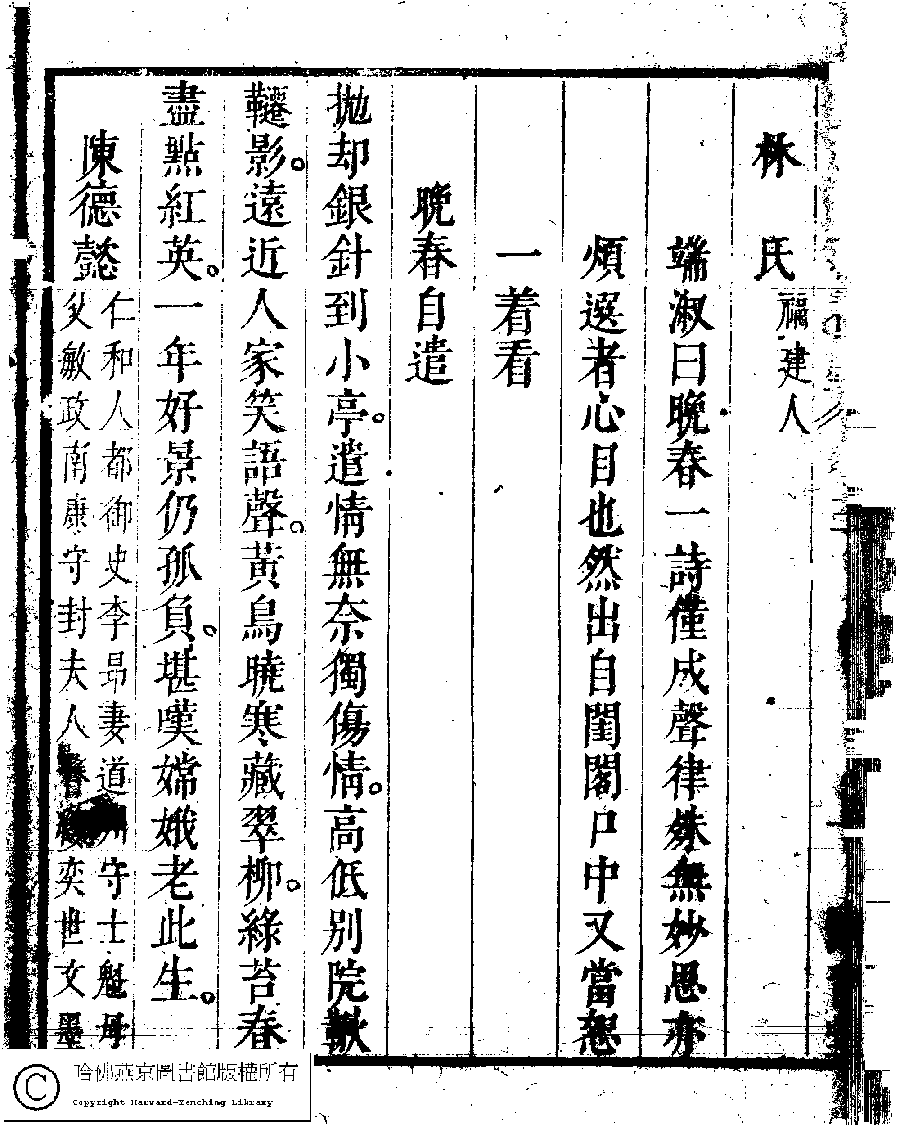 林氏 福建人
端淑曰晚春一詩僅成聲律殊無妙思亦
煩選者心目也然出自閨閣口中又當恕
一着看
晚春自遣
拋却銀針到小亭。遣情無奈獨傷情。高低別院鞦
韆影。遠近人家笑語聲。黃鳥曉寒藏翠柳。綠苔春
盡點紅英。一年好景仍孤負。堪嘆嫦娥老此生。
陳德懿
仁和人都御史李昂妻道州守士魁母
父敏政南康守封夫人 奕世文墨
哈佛燕京圖書館版權所有
Copyright Harvard-Yenching Library